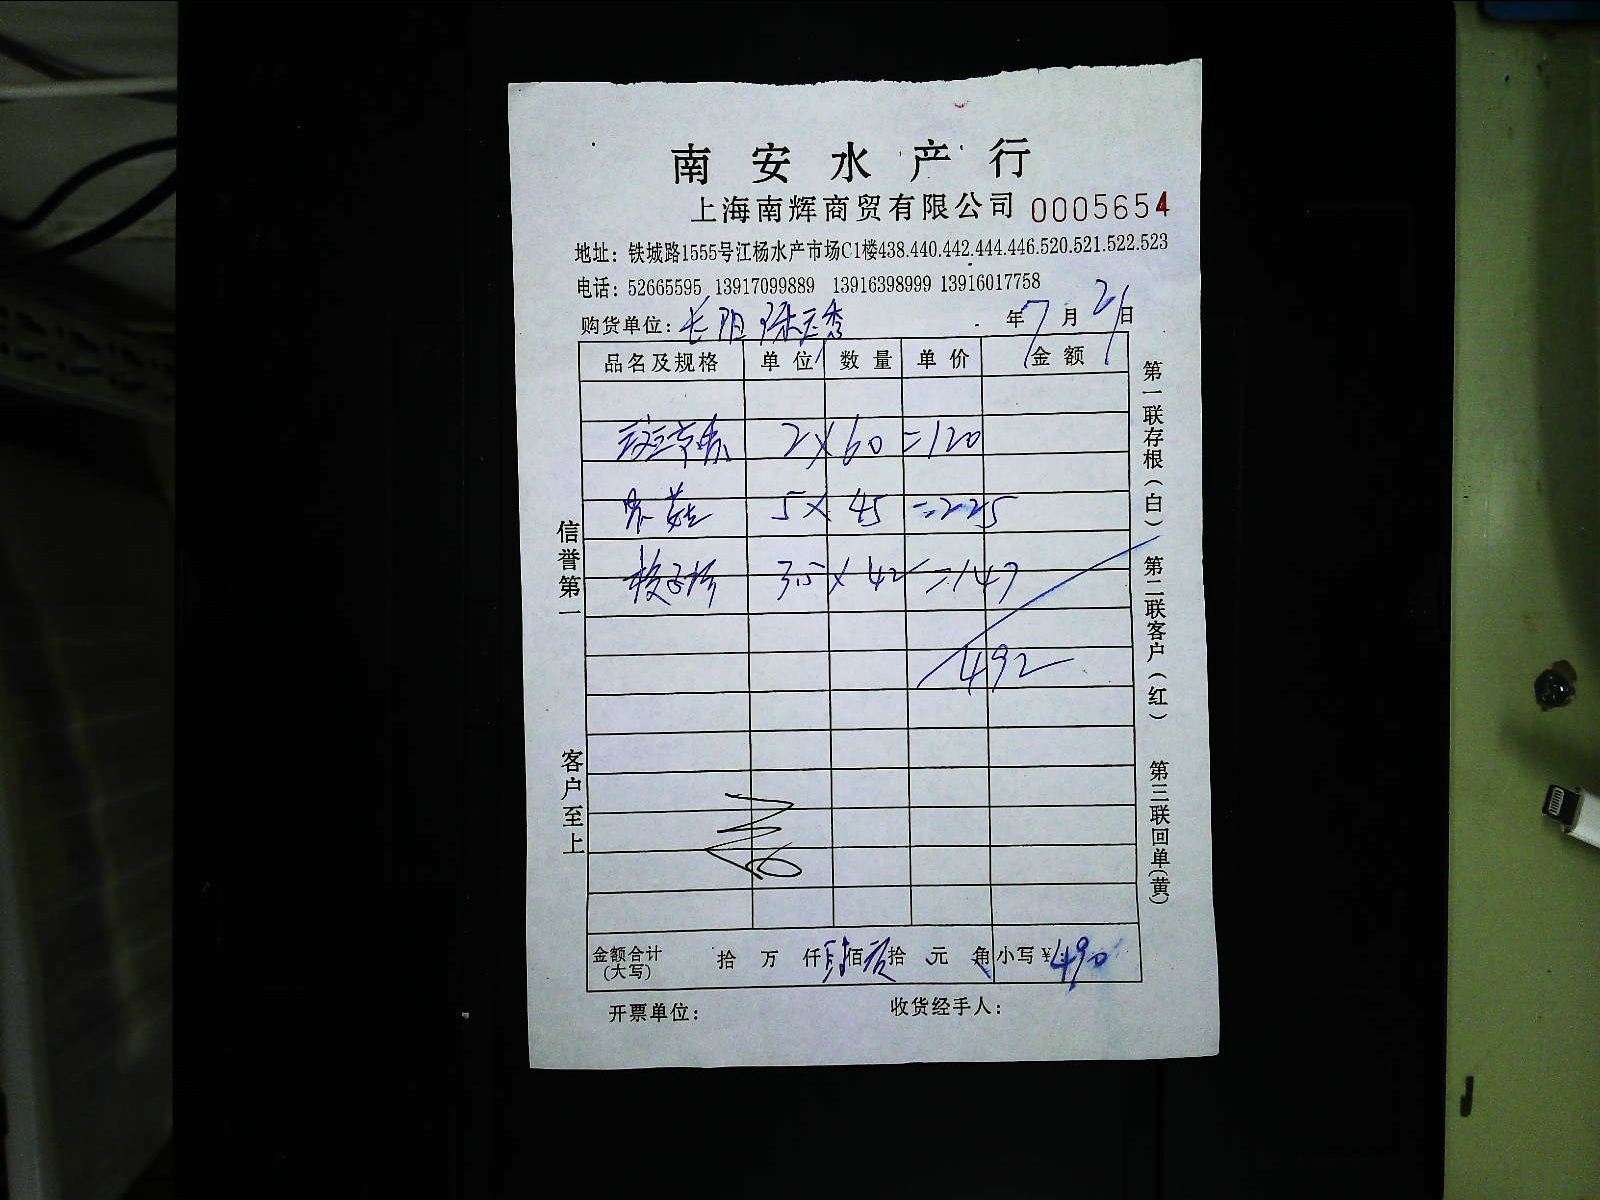 南安水产行
上海南辉商贸有限公司 0005654
地址：铁城路1555号江杨水产市场C1楼438.440.442.444.446.520.521.522.523
电话：52665595 13917099889 13916398999 13916017758
购货单位：长阳 陈玉秀 年7月26日
品名及规格 单位 数量 单价 金额
2×60=120
5×45=225
3.5×42=147
492
金额合计(大写) 拾 万 仟 肆佰 玖拾 元 角 小写¥490
开票单位： 收货经手人：
信誉第一
客户至上
第一联存根(白) 第二联客户(红) 第三联回单(黄)